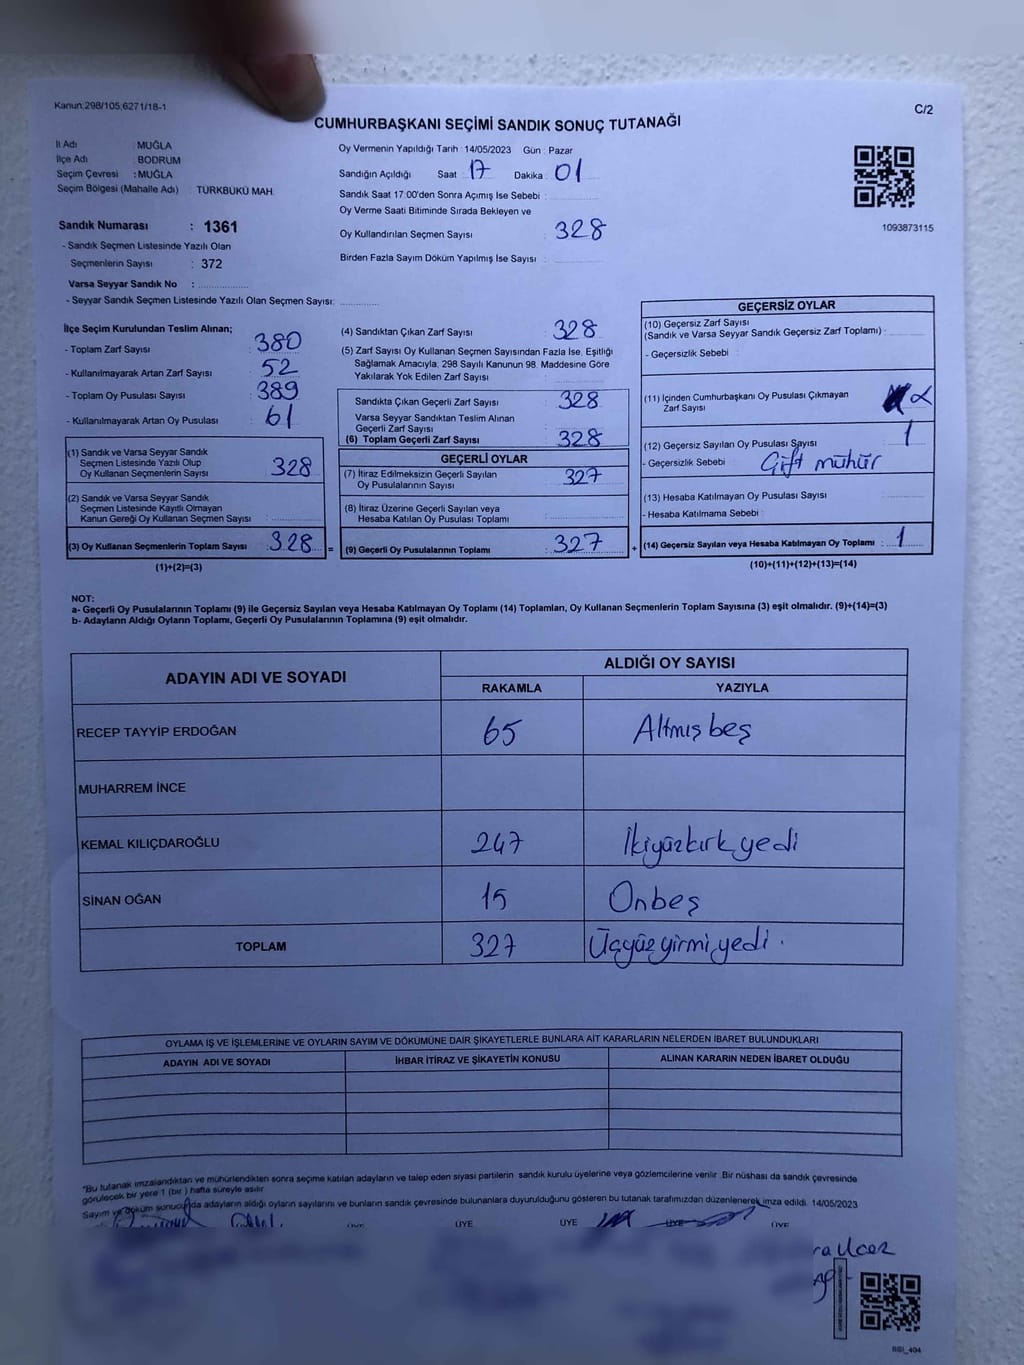 Kanun:298/105,6271/18-1
C/2
CUMHURBAŞKANI SEÇİMİ SANDIK SONUÇ TUTANAĞI
İl Adı : MUĞLA
İlçe Adı : BODRUM
Seçim Çevresi : MUĞLA
Seçim Bölgesi (Mahalle Adı) : TÜRKBÜKÜ MAH.
Sandık Numarası : 1361
- Sandık Seçmen Listesinde Yazılı Olan
Seçmenlerin Sayısı : 372
Varsa Seyyar Sandık No :
- Seyyar Sandık Seçmen Listesinde Yazılı Olan Seçmen Sayısı:
Oy Vermenin Yapıldığı Tarih : 14/05/2023 Gün : Pazar
Sandığın Açıldığı Saat : 17 Dakika : 01
Sandık Saat 17:00'den Sonra Açımış İse Sebebi :
Oy Verme Saati Bitiminde Sırada Bekleyen ve
Oy Kullandırılan Seçmen Sayısı : 328
Birden Fazla Sayım Döküm Yapılmış İse Sayısı :
1093873115
İlçe Seçim Kurulundan Teslim Alınan;
- Toplam Zarf Sayısı : 380
- Kullanılmayarak Artan Zarf Sayısı : 52
- Toplam Oy Pusulası Sayısı : 389
- Kullanılmayarak Artan Oy Pusulası : 61
(1) Sandık ve Varsa Seyyar Sandık
Seçmen Listesinde Yazılı Olup
Oy Kullanan Seçmenlerin Sayısı : 328
(2) Sandık ve Varsa Seyyar Sandık
Seçmen Listesinde Kayıtlı Olmayan
Kanun Gereği Oy Kullanan Seçmen Sayısı :
(3) Oy Kullanan Seçmenlerin Toplam Sayısı : 328 =
(1)+(2)=(3)
(4) Sandıktan Çıkan Zarf Sayısı : 328
(5) Zarf Sayısı Oy Kullanan Seçmen Sayısından Fazla İse, Eşitliği
Sağlamak Amacıyla, 298 Sayılı Kanunun 98. Maddesine Göre
Yakılarak Yok Edilen Zarf Sayısı :
Sandıkta Çıkan Geçerli Zarf Sayısı : 328
Varsa Seyyar Sandıktan Teslim Alınan
Geçerli Zarf Sayısı :
(6) Toplam Geçerli Zarf Sayısı : 328
GEÇERLİ OYLAR
(7) İtiraz Edilmeksizin Geçerli Sayılan
Oy Pusulalarının Sayısı : 327
(8) İtiraz Üzerine Geçerli Sayılan veya
Hesaba Katılan Oy Pusulası Toplamı :
(9) Geçerli Oy Pusulalarının Toplamı : 327 +
GEÇERSİZ OYLAR
(10) Geçersiz Zarf Sayısı
(Sandık ve Varsa Seyyar Sandık Geçersiz Zarf Toplamı) :
- Geçersizlik Sebebi :
(11) İçinden Cumhurbaşkanı Oy Pusulası Çıkmayan
Zarf Sayısı :
(12) Geçersiz Sayılan Oy Pusulası Sayısı : 1
- Geçersizlik Sebebi : Çift mühür
(13) Hesaba Katılmayan Oy Pusulası Sayısı :
- Hesaba Katılmama Sebebi :
(14) Geçersiz Sayılan veya Hesaba Katılmayan Oy Toplamı : 1
(10)+(11)+(12)+(13)=(14)
NOT:
a- Geçerli Oy Pusulalarının Toplamı (9) ile Geçersiz Sayılan veya Hesaba Katılmayan Oy Toplamı (14) Toplamları, Oy Kullanan Seçmenlerin Toplam Sayısına (3) eşit olmalıdır. (9)+(14)=(3)
b- Adayların Aldığı Oyların Toplamı, Geçerli Oy Pusulalarının Toplamına (9) eşit olmalıdır.
ADAYIN ADI VE SOYADI ALDIĞI OY SAYISI
RAKAMLA YAZIYLA
RECEP TAYYİP ERDOĞAN 65 Altmış beş
MUHARREM İNCE
KEMAL KILIÇDAROĞLU 247 İkiyüzkırk yedi
SİNAN OĞAN 15 Onbeş
TOPLAM 327 Üçyüz yirmi yedi.
OYLAMA İŞ VE İŞLEMLERİNE VE OYLARIN SAYIM VE DÖKÜMÜNE DAİR ŞİKAYETLERLE BUNLARA AİT KARARLARIN NELERDEN İBARET BULUNDUKLARI
ADAYIN ADI VE SOYADI İHBAR İTİRAZ VE ŞİKAYETİN KONUSU ALINAN KARARIN NEDEN İBARET OLDUĞU
*Bu tutanak imzalandıktan ve mühürlendikten sonra seçime katılan adayların ve talep eden siyasi partilerin sandık kurulu üyelerine veya gözlemcilerine verilir. Bir nüshası da sandık çevresinde
görülecek bir yere 1 (bir ) hafta süreyle asılır.
Sayım ve döküm sonucunda adayların aldığı oyların sayılarını ve bunların sandık çevresinde bulunanlara duyurulduğunu gösteren bu tutanak tarafımızdan düzenlenerek imza edildi. 14/05/2023
ÜYE ÜYE ÜYE ÜYE ÜYE